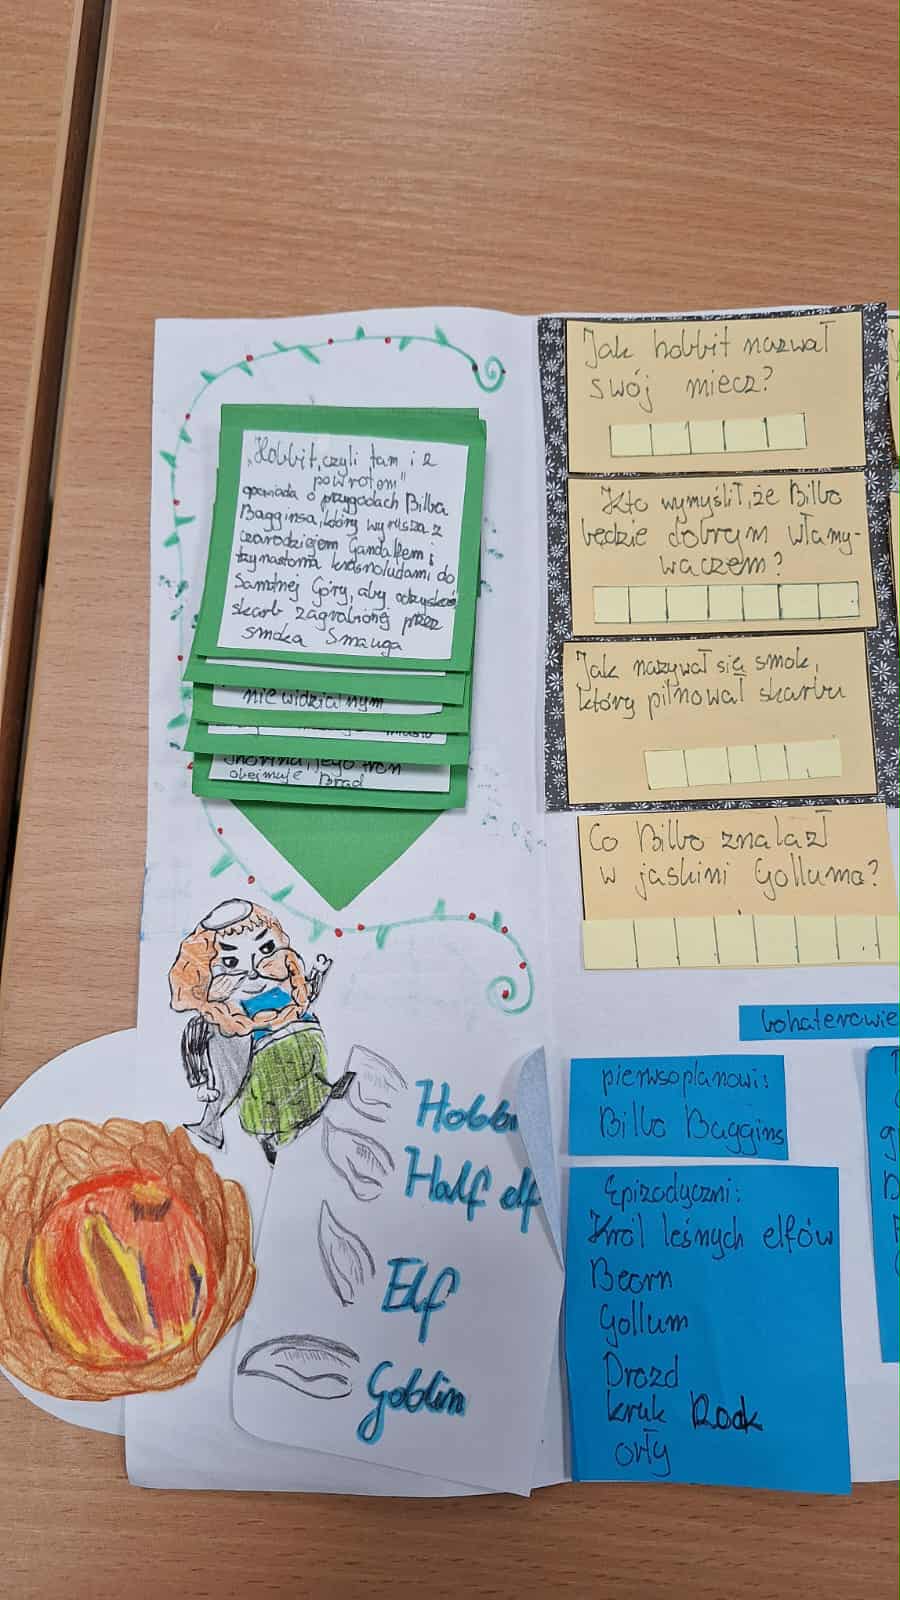 „Hobbit, czyli tam i z
powrotem"
opowiada o przygodach Bilba
Bagginsa, który wyrusza z
czarodziejem Gandalfem i
trzynastoma krasnoludami do
Samotnej Góry, aby odzyskać
skarb zagrabiony przez
smoka Smauga
niewidzialnym
miasto
Thorina, jego tron
obejmuje Brad
Jak hobbit nazwał
swój miecz?
Kto wymyślił, że Bilbo
będzie dobrym włamy-
waczem?
Jak nazywał się smok,
który pilnował skarbu
Co Bilbo znalazł
w jaskini Golluma?
bohaterowie
pierwsoplanowi:
Bilbo Baggins
Epizodyczni:
Król leśnych elfów
Beorn
Gollum
Drozd
kruk Roak
orły
Hobbi
Half elf
Elf
Goblin